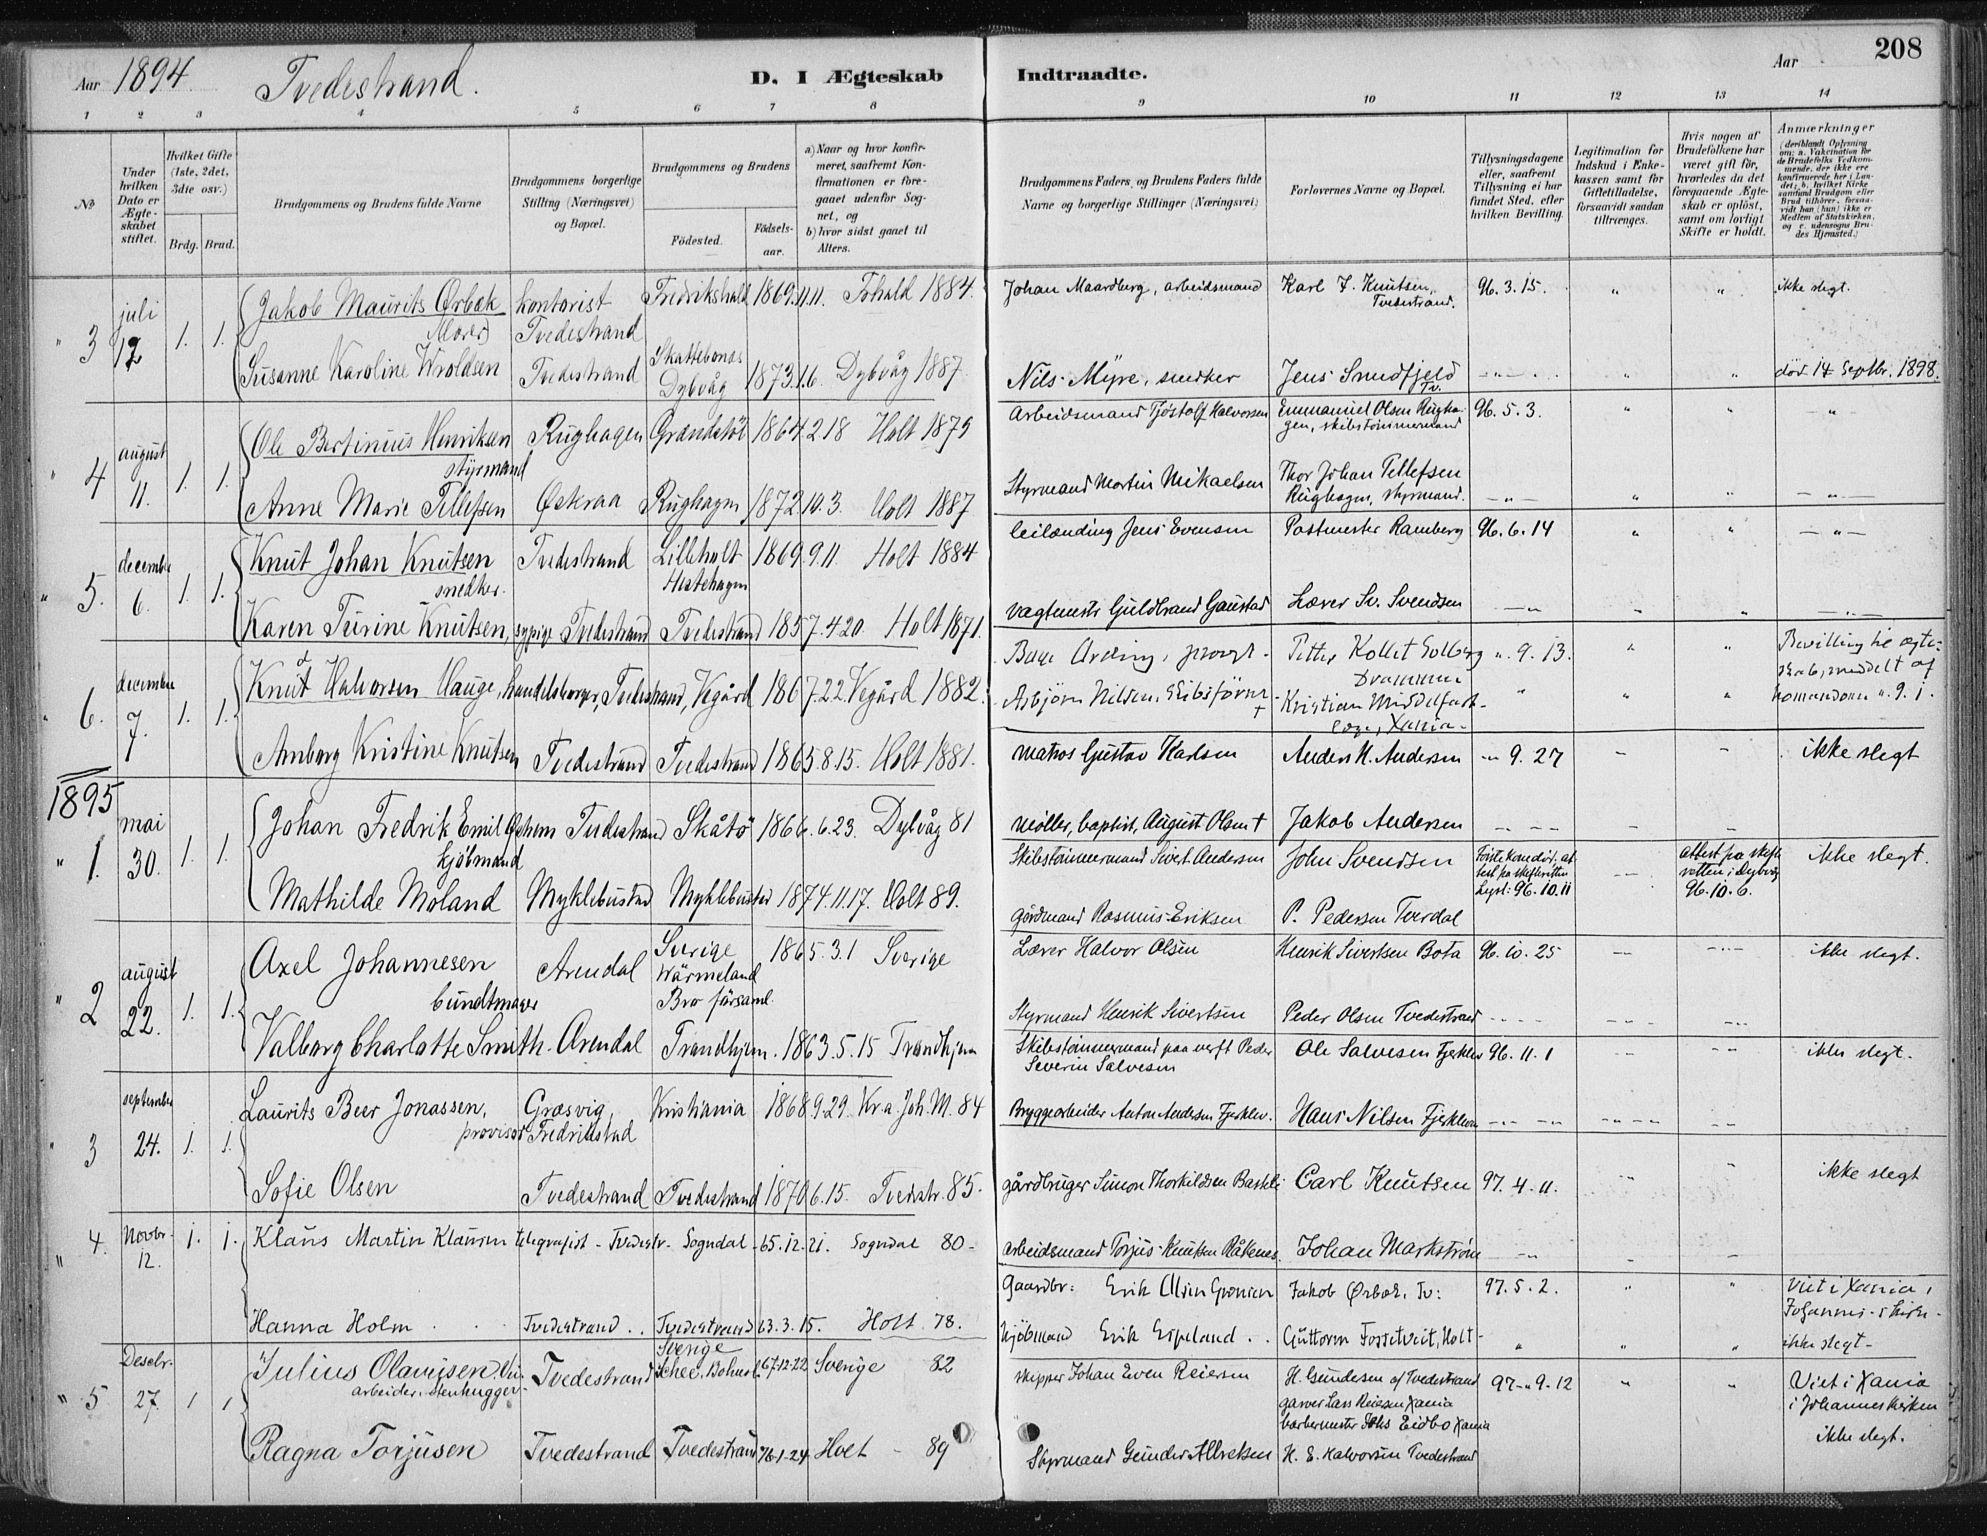 Aar 1894 Tvedestrand. D. I Ægteskab
1 2 3 4 5 6 7 8
No
Under hvilken Dato er Ægteskabet stiftet.
Hvilket Gifte (1ste, 2det, 3die osv.)
Brdg. Brud.
Brudgommens og Brudens fulde Navne
Brudgommens borgerlige Stilling (Næringsvei) og Bopæl.
Brudgommens og Brudens
Fødested. Fødselsaar.
a) Naar og hvor konfirmeret, saafremt Konfirmationen er foregaaet udenfor Sognet, og
b) hvor sidst gaaet til Alters.
" 3 juli 12 1. 1. Jakob Maurits Ørbæk kontorist Tvedestrand Fredrikshald 1869.11.11. Frhald 1884.
Susanne Karoline Wroldsen Tvedestrand Dybvåg 1873.1.6. Dybvåg 1887.
" 4 august 11. 1. 1. Ole Bertinius Henriksen Rughagen Grændstøl 1864.2.18 Holt 1879
styrmand
Anne Marie Tellefsen Øskraa Rughagen 1872.10.3. Holt 1887
" 5. december 6. 1. 1. Knut Johan Knutsen Tvedestrand Lilleholt Hestehagen 1869.9.11 Holt 1884
snedker.
Karen Turine Knutsen, sypige Tvedestrand Tvedestrand 1857.4.20. Holt 1871.
" 6. december 7. 1. 1. Knut Halvorsen Hauge, handelsborger, Tvedestrand, Vegård 1867.22. Vegård 1882.
Amborg Kristine Knutsen Tvedestrand Tvedestrand 1865.8.15. Holt 1881.
1895
" 1. mai 30. 1. 1. Johan Fredrik Emil Tvedestrand Skåtø 1866.6.23. Dybvåg 81
kjøbmand
Mathilde Moland Myklebustad Myklebustad 1874.11.17. Holt 89.
" 2 august 22. 1. 1. Axel Johannesen Arendal Sverige Wärmeland Bro församl. 1865.3.1 Sverige
bundtmager
Valborg Charlotte Smith. Arendal Trondhjem. 1863.5.15 Trondhjem
" 3 september 24. 1. 1. Laurits Beer Jonassen, Græsvig, Fredrikstad Kristiania 1868.9.29. Kr.a. Joh. M. 84
provisor
Sofie Olsen Tvedestrand Tvedestrand 1870.6.15. Tvedstr. 85.
" 4. Novbr. 12. 1. 1. Klaus Martin Klausen telegrafist - Tvedestr. Sogndal - 65.12.21. Sogndal 80-
Hanna Holm Tvedestrand.. Tvedestrand 63.3.15. Holt 78.
" 5 Decbr. 27. 1 1 Julius Olausen Tvedestrand Sverige 67.12.22 Sverige 82
arbeider, stenhugger
Ragna Torjusen Tvedestrand Tvedestrand 76-1-24 Holt - 89
Indtraadte. Aar 208
9 10 11 12 13 14
Brudgommens Faders og Brudens Faders fulde Navne og borgerlige Stillinger (Næringsvei)
Forlovernes Navne og Bopæl.
Tillysningsdagene eller, saafremt Tillysning ei har fundet Sted, efter hvilken Bevilling.
Legitimation for Indskud i Enkekassen samt for Giftetilladelse, forsaavidt saadan tiltrænges.
Hvis nogen af Brudefolkene har været gift før, hvorledes da det foregaaende Ægteskab er opløst, samt om lovligt Skifte er holdt.
Anmærkninger (deriblandt Oplysning om: a. Vakcination for de Brudefolks Vedkommende, der ikke ere konfirmerede her i Landet; b. hvilket Kirkesamfund Brudgom eller Brud tilhører, forsaavidt han (hun) ikke er Medlem af Statskirken, og c. udensogns Brudes Hjemsted.)
Johan Maardberg, arbeidsmand Karl J. Knutsen, Tvedestrand. 96.3.15. " " ikke slegt.
Nils Myre, snedker Jens Smedfjeld Tv. -"- " " død 14 Septbr. 1898.
Arbeidsmand Tjøstolf Halvorsen Emmanuel Olsen Rughagen, skibstømmermand 96.5.3. " " "
Styrmand Martin Mikaelsen Thor Johan Tellefsen Rughagen, styrmand. -"- " " -"-
leilænding Jens Evensen Postmester Ramberg 96.6.14 " " -"-
vagtmestr Guldbrand Gaustad Lærer Sv. Svendsen -"- " " -"-
Petter Kollet Solberg Drammen ". 9.13. " " Bevilling til ægteskab, meddelt af
Asbjørn Nilsen, Skibsfører + Kristian Middelfart Xania. " " " 9.1.
Matros Gustav Karlsen Anders K. Andersen -" 9.27 - - ikke slegt
Møller, baptist, August Olsen + Jakob Andersen
Skibstømmermand Sivert Andersen John Svendsen Første kone død, attest på skifteretten Lyst: 96.10.11 attest på skifteretten i Dybvåg 96.10.6. ikke slegt.
gårdmand Rasmus Eriksen P. Pedersen Tverdal
Lærer Halvor Olsen Henrik Sivertsen Bota 96.10.25 ikke slegt.
Styrmand Henrik Sivertsen Peder Olsen Tvedestrand
Skibstømmermand paa verft Peder Severin Salvesen Ole Salvesen Fjerkleiv 96.11.1 ikke slegt.
Bryggearbeider Anton Andersen Fjerklev. Hans Nilsen Fjerkleiv
gårdbruger Simon Thorkildsen Carl Knutsen 97.4.11. " " ikke slegt
arbeidsmand Torjus Knutsen Råkenes Johan Markstrøm -"- - -
Gaardbr: Erik Olsen Jakob Ørbæk. Tv: 97.5.2. " " Viet i Xania,
Johannes-i kirke-
Kjøbmand Erik Espeland.. Guttorm Fosstveit, Holt - " " " ikke slegt-
skipper Johan Even Reiersen H. Gundesen af Tvedestrand 97-"9.12 " " Viet i Xania
garver Lars Reiersen Xania i Johanneskirken
barbermester Eidbo Xania ikke slegt.
Styrmand Gunder Albretsen K. E. Halvorsen Tvedestrand